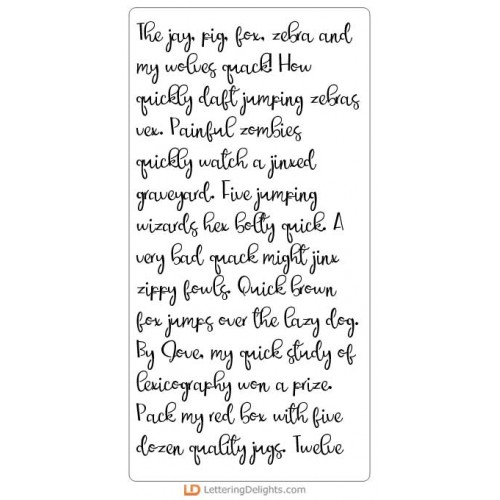 The jay, pig, fox, zebra and
my wolves quack! How
quickly daft jumping zebras
vex. Painful zombies
quickly watch a jinxed
graveyard. Five jumping
wizards hex bolty quick. A
very bad quack might jinx
zippy fowls. Quick brown
fox jumps over the lazy dog.
By Jove, my quick study of
lexicography won a prize.
Pack my red box with five
dozen quality jugs. Twelve
LD LetteringDelights.com